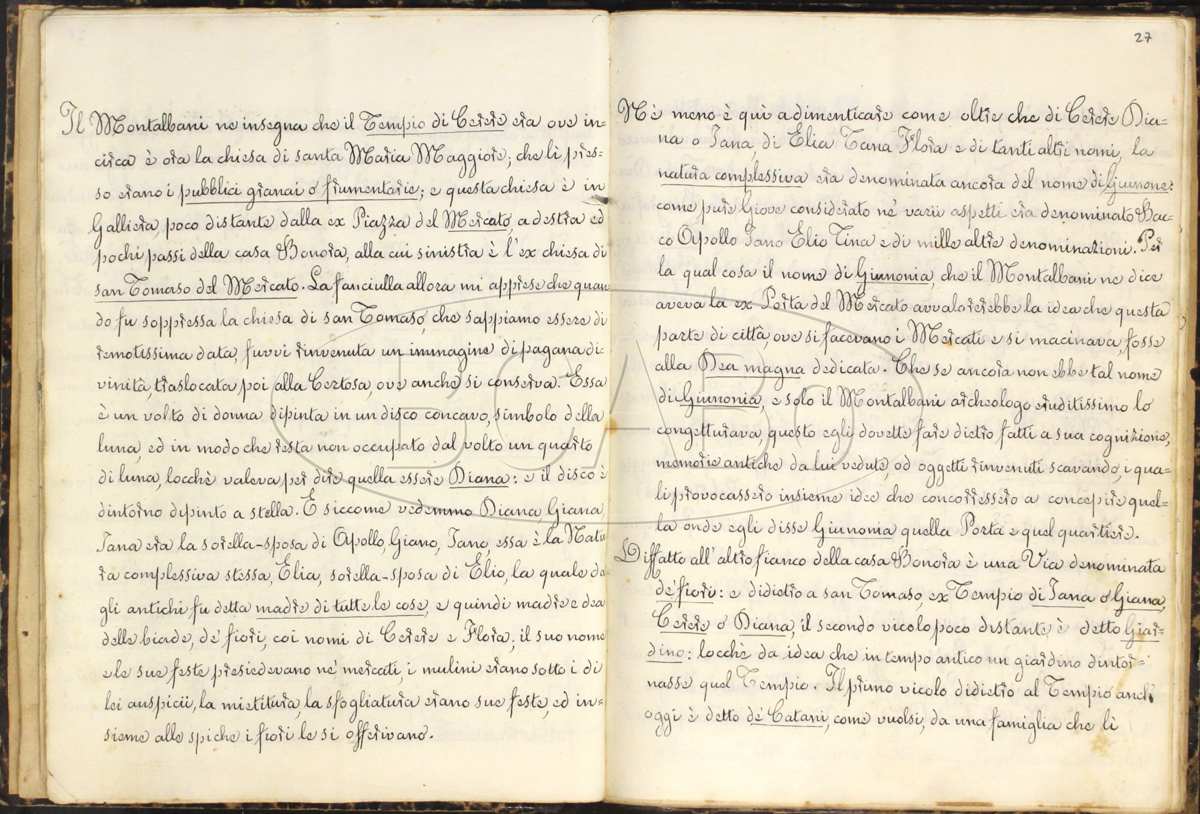 Il Montalbani ne insegna che il Tempio di Cerere era ove in=
circa è ora la chiesa di santa Maria Maggiore; che li pres=
so erano i pubblici granai o frumentarie; e questa chiesa è in
Galliera, poco distante dalla ex Piazza del Mercato, a destra ed
pochi passi della casa Bonora, alla cui sinistra è l'ex chiesa di
san Tomaso del Mercato. La fanciulla allora mi apprese che quan
do fu soppressa la chiesa di san Tomaso, che sappiamo essere di
remotissima data, furvi rinvenuta un immagine di pagana di=
vinità, traslocata poi alla Certosa, ove anche si conserva. Essa
è un volto di donna dipinta in un disco concavo, simbolo della
luna, ed in modo che resta non occupato dal volto un quarto
di luna, locchè valeva per dire quella essere Diana: e il disco è
dintorno dipinto a stella. E siccome vedemmo Diana, Giana,
Jana era la sorella-sposa di Apollo, Giano, Jano, essa è la Natu
ra complessiva stessa, Elia, sorella-sposa di Elio, la quale da
gli antichi fu detta madre di tutte le cose, e quindi madre e dea
delle biade, de' fiori, coi nomi di Cerere e Flora; il suo nome
e le sue feste presiedevano ne' mercati, i mulini erano sotto i di
lei auspicii, la mietitura, la sfogliatura erano sue feste, ed in=
sieme alle spiche i fiori le si offerivano.
27
Nè meno è quì a dimenticare come oltre che di Cerere Dia=
na o Jana, di Elia Tana Flora e di tanti altri nomi, la
natura complessiva era denominata ancora del nome di Giunone:
come pure Giove considerato ne' varii aspetti era denominato Bac=
co Apollo Jano Elio Tina e di mille altre denominazioni. Per
la qual cosa il nome di Giunonia, che il Montalbani ne dice
aveva la ex Porta del Mercato avvalorerebbe la idea che questa
parte di città, ove si facevano i Mercati e si macinava, fosse
alla Dea magna dedicata. Che se ancora non ebbe tal nome
di Giunonia, e solo il Montalbani archeologo eruditissimo lo
congetturava, questo egli dovette fare dietro fatti a sua cognizione,
memorie antiche da lui vedute, od oggetti rinvenuti scavando, i qua=
li provocassero insieme idee che concorressero a concepire quel=
la onde egli disse Giunonia quella Porta e quel quartiere.
Diffatto all'altro fianco della casa Bonora è una Via denominata
de' fiori: e didietro a san Tomaso, ex Tempio di Jana o Giana,
Cerere o Diana, il secondo vicolo poco distante è detto Giar=
dino: locchè da idea che in tempo antico un giardino dintor=
nasse quel Tempio. Il primo vicolo didietro al Tempio anch'
oggi è detto de' Catani, come vuolsi, da una famiglia che lì
BCABo